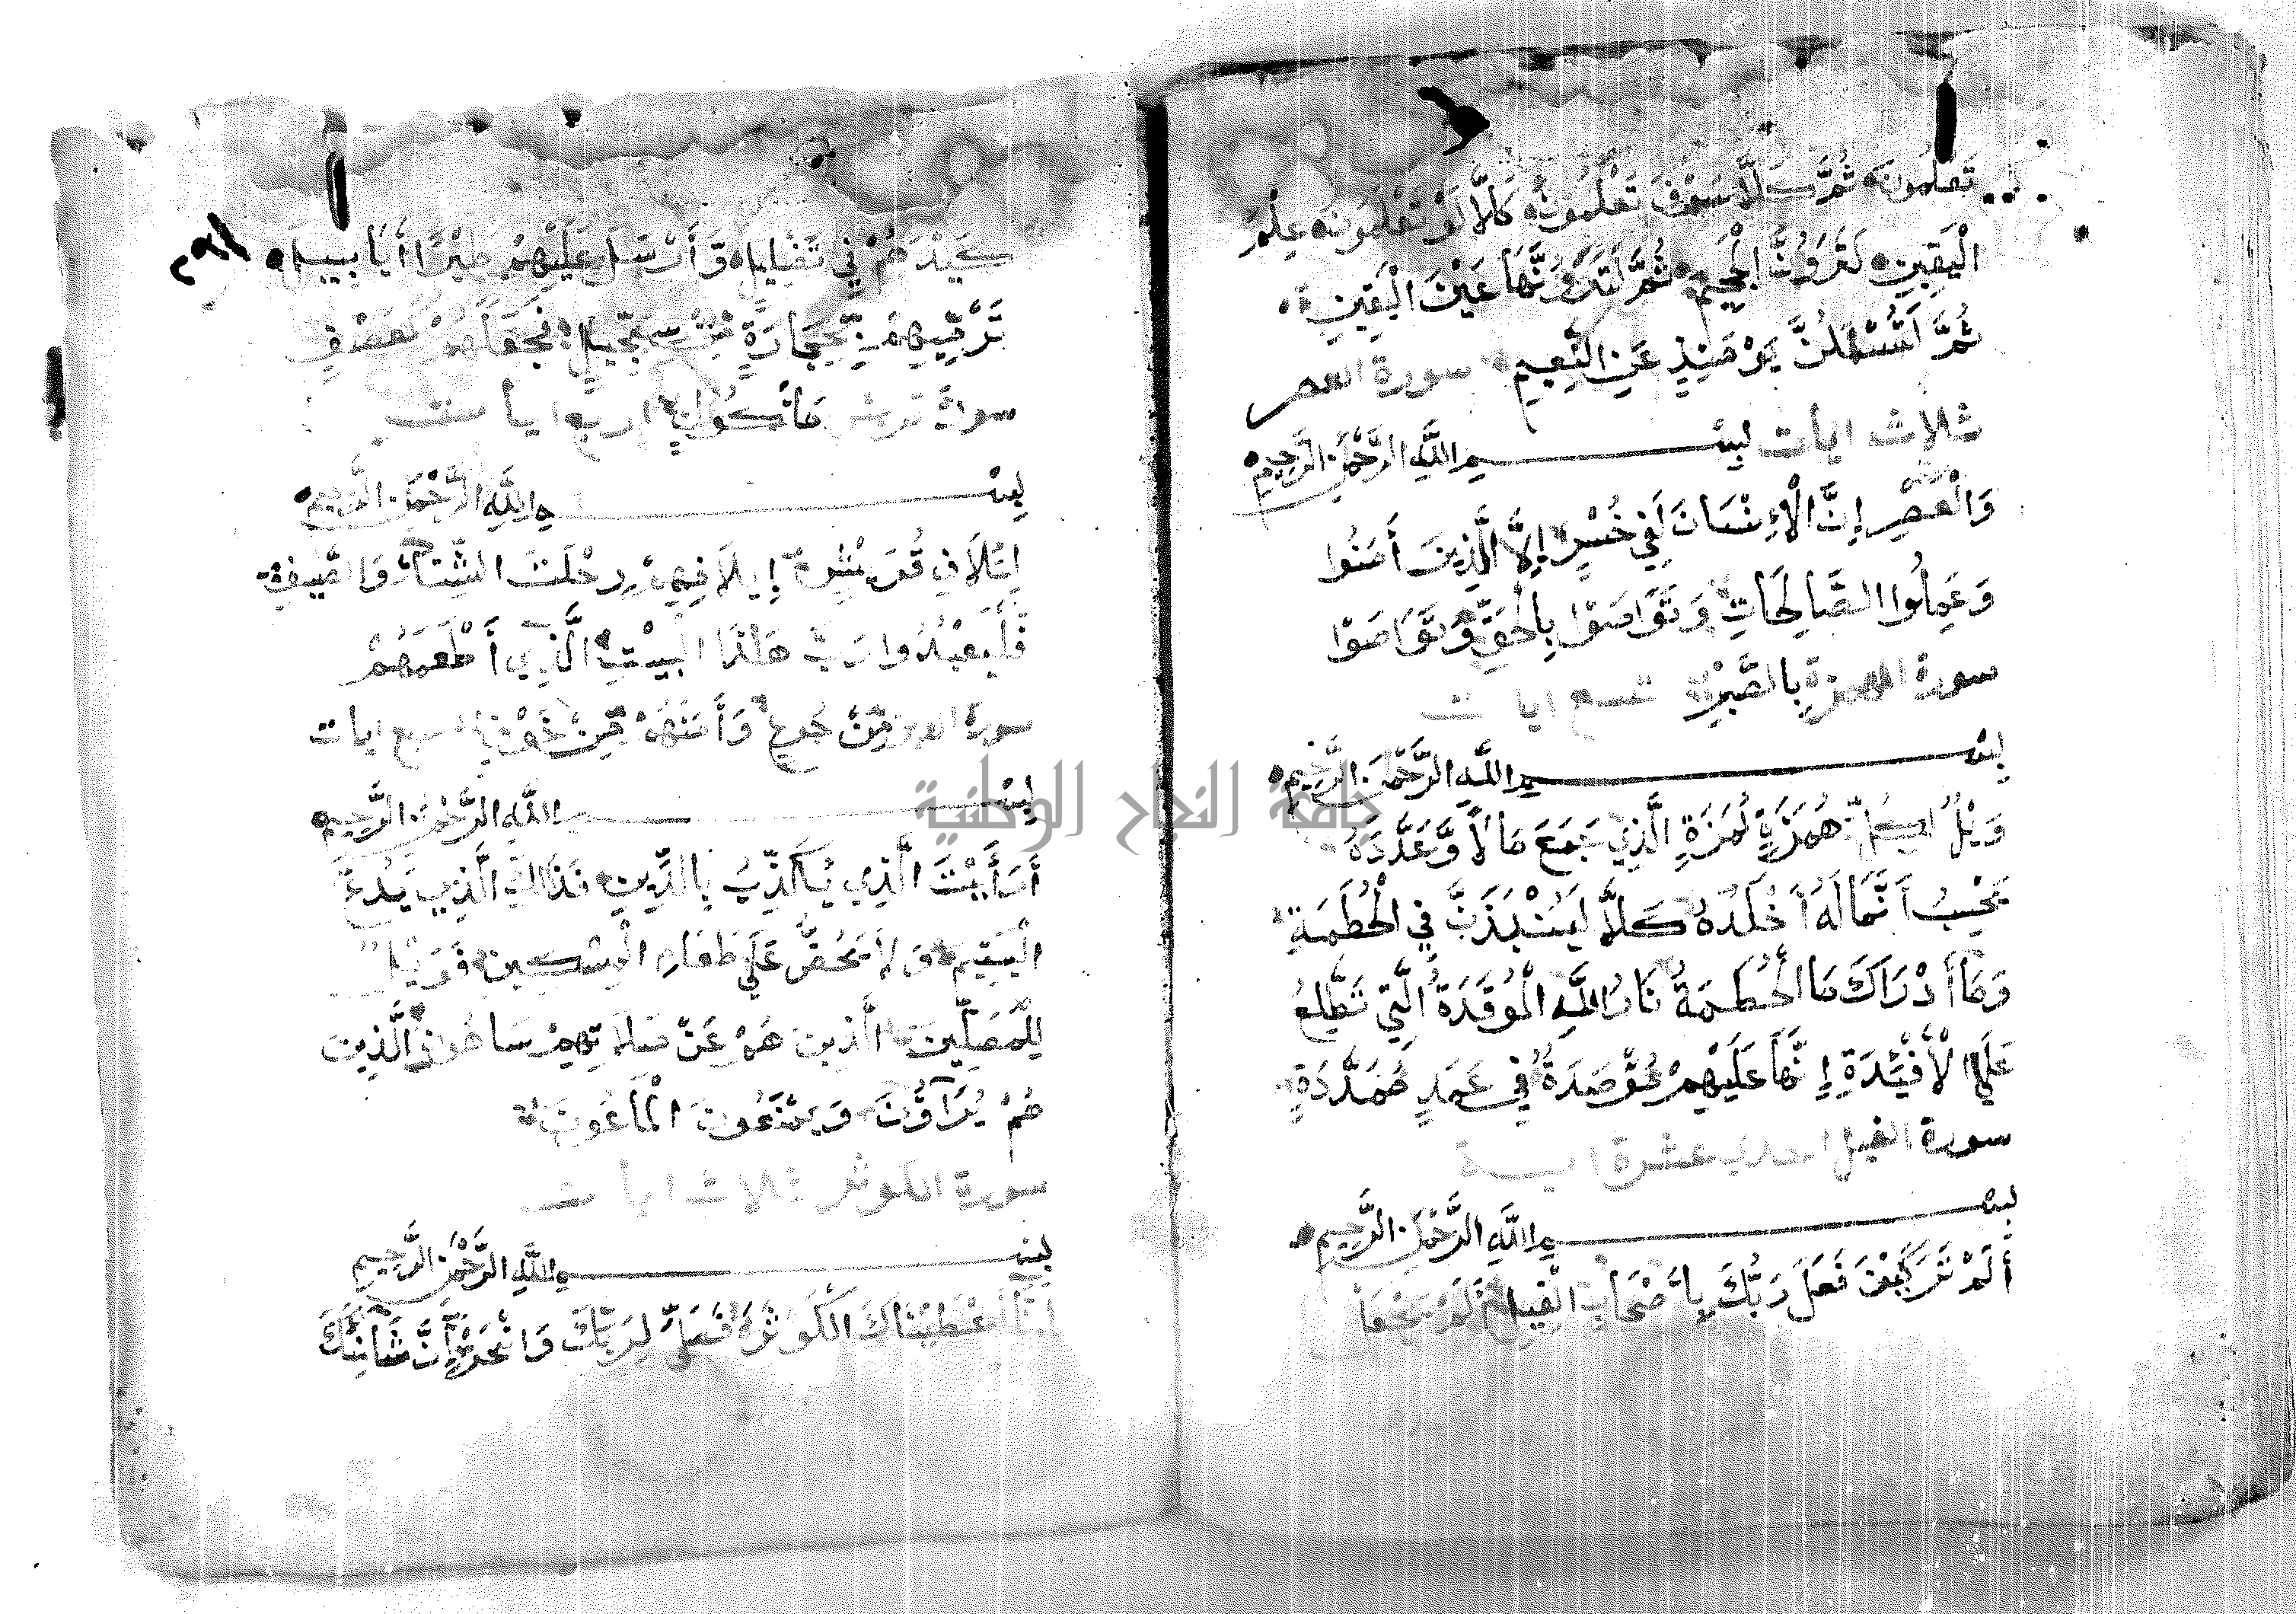 تَعْلَمُونَ ثُمَّ كَلَّا سَوْفَ تَعْلَمُونَ كَلَّا لَوْ تَعْلَمُونَ عِلْمَ
الْيَقِينِ لَتَرَوُنَّ الْجَحِيمَ ثُمَّ لَتَرَوُنَّهَا عَيْنَ الْيَقِينِ
ثُمَّ لَتُسْئَلُنَّ يَوْمَئِذٍ عَنِ النَّعِيمِ سورة العصر
ثلاث ايات بِسْمِ اللَّهِ الرَّحْمَنِ الرَّحِيمِ
وَالْعَصْرِ إِنَّ الْإِنْسَانَ لَفِي خُسْرٍ إِلَّا الَّذِينَ أَمَنُوا
وَعَمِلُوا الصَّالِحَاتِ وَتَوَاصَوْا بِالْحَقِّ وَتَوَاصَوْا
سورة الهمزة بِالصَّبْرِ تسع ايات
بِسْمِ اللَّهِ الرَّحْمَنِ الرَّحِيمِ
وَيْلٌ لِكُلِّ هُمَزَةٍ لُمَزَةٍ الَّذِي جَمَعَ مَالًا وَّعَدَّدَهُ
يَحْسِبُ أَنَّ مَالَهُ أَخْلَدَهُ كَلَّا لَيُنْبَذَنَّ فِي الْحُطَمَةِ
وَمَا أَدْرَاكَ مَا الْحُطَمَةُ نَارُ اللَّهِ الْمُوقَدَةُ الَّتِي تَطَّلِعُ
عَلَى الْأَفْئِدَةِ إِنَّهَا عَلَيْهِمْ مُّوْصَدَةٌ فِي عَمَدٍ مُمَدَّدَةٍ
سورة الفيل احدي عشرة اية
بِسْمِ اللَّهِ الرَّحْمَنِ الرَّحِيمِ
أَلَمْ تَرَ كَيْفَ فَعَلَ رَبُّكَ بِأَصْحَابِ الْفِيلِ أَلَمْ يَجْعَلْ
كَيْدَهُمْ فِي تَضْلِيلٍ وَّأَرْسَلَ عَلَيْهِمْ طَيْرًا أَبَابِيلَ
تَرْمِيهِمْ بِحِجَارَةٍ مِّنْ سِجِّيلٍ فَجَعَلَهُمْ كَعَصْفٍ
سورة قريش مَأْكُولٍ اربع ايات
بِسْمِ اللَّهِ الرَّحْمَنِ الرَّحِيمِ
لِئِلَافِ قُرَيْشٍ إِيلَافِهِمْ رِحْلَتَ الشِّتَاءِ وَالصَّيْفِ
فَلْيَعْبُدُوا رَبَّ هَذَا الْبَيْتِ الَّذِي أَطْعَمَهُمْ
سورة مِّنْ جُوعٍ وَأَمَنَهُمْ مِّنْ خَوْفٍ سبع ايات
بِسْمِ اللَّهِ الرَّحْمَنِ الرَّحِيمِ
أَرَأَيْتَ الَّذِي يُكَذِّبُ بِالدِّينِ فَذَالِكَ الَّذِي يَدُعُّ
الْيَتِيمَ وَلَا يَحُضُّ عَلَى طَعَامِ الْمِسْكِينِ فَوَيْلٌ
لِلْمُصَلِّينَ الَّذِينَ هُمْ عَنْ صَلَاتِهِمْ سَاهُونَ الَّذِينَ
هُمْ يُرَاؤُنَ وَيَمْنَعُونَ الْمَاعُونَ
سورة الكوثر ثلاث ايات
بِسْمِ اللَّهِ الرَّحْمَنِ الرَّحِيمِ
إِنَّا أَعْطَيْنَاكَ الْكَوْثَرَ فَصَلِّ لِرَبِّكَ وَانْحَرْ إِنَّ شَانِئَكَ
جامعة النجاح الوطنية